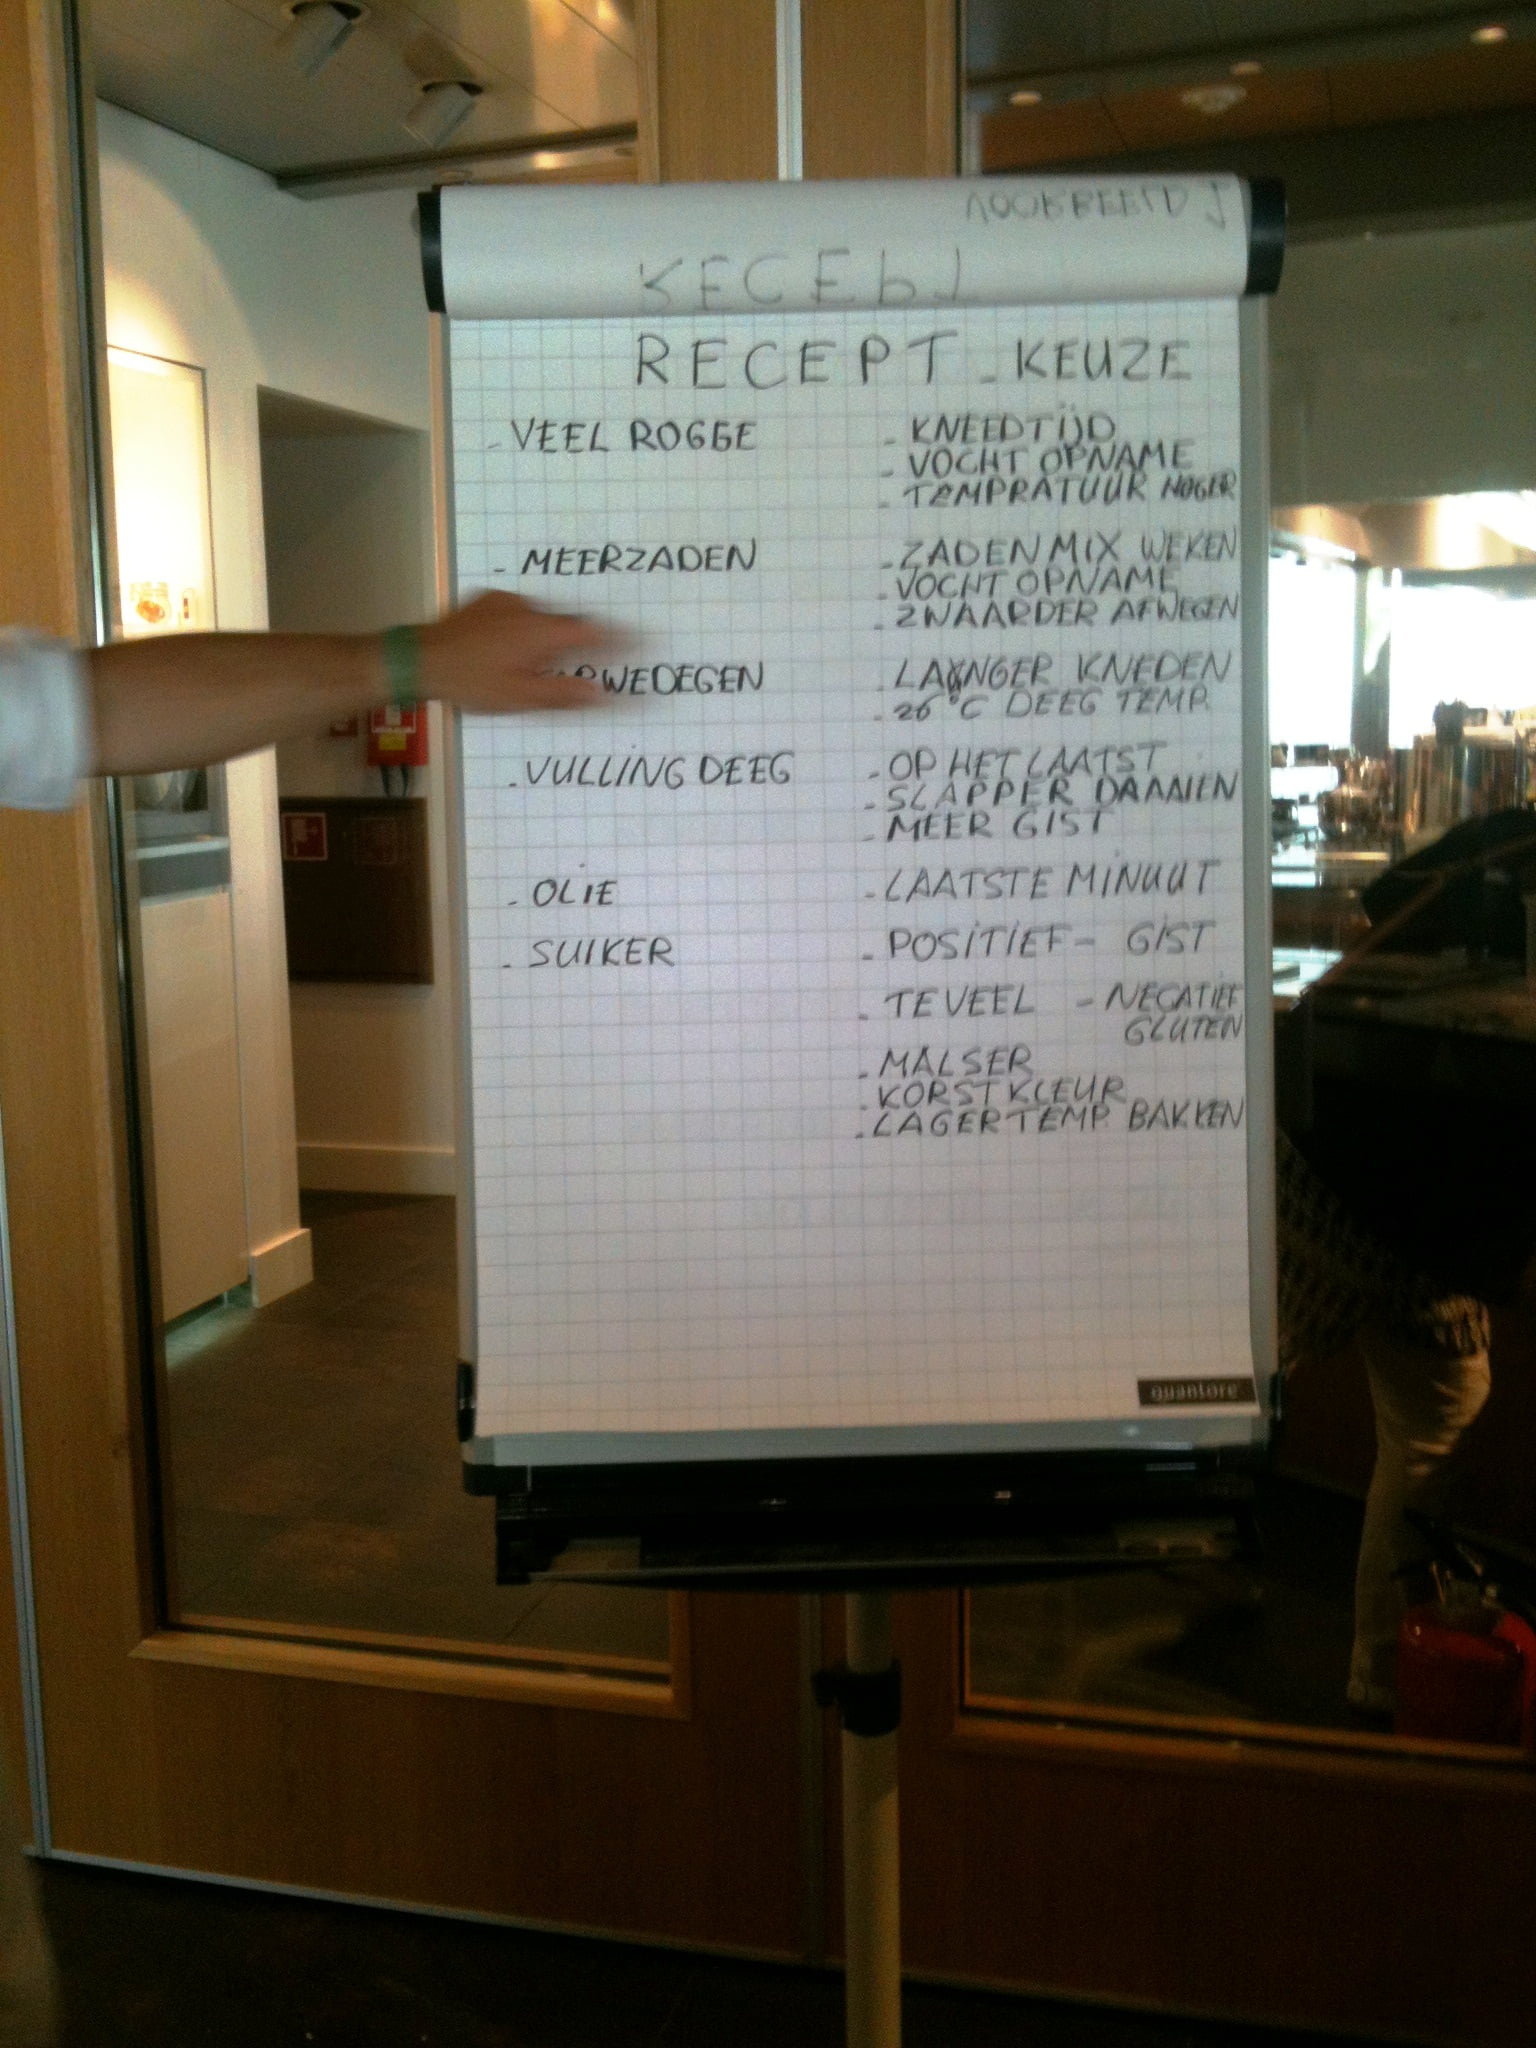 VOORBEELD
RECEPT
RECEPT - KEUZE
- VEEL ROGGE
- KNEEDTIJD
- VOCHT OPNAME
- TEMPRATUUR HOGER
- MEERZADEN
- ZADENMIX WEKEN
- VOCHT OPNAME
- ZWAARDER AFWEGEN
RWEDEGEN
- LANGER KNEDEN
- 26°C DEEG TEMP.
- VULLING DEEG
- OP HET LAATST
- SLAPPER DRAAIEN
- MEER GIST
- OLIE
- LAATSTE MINUUT
- SUIKER
- POSITIEF - GIST
- TEVEEL - NEGATIEF
GLUTEN
- MALSER
- KORSTKLEUR
- LAGER TEMP. BAKKEN
quantore